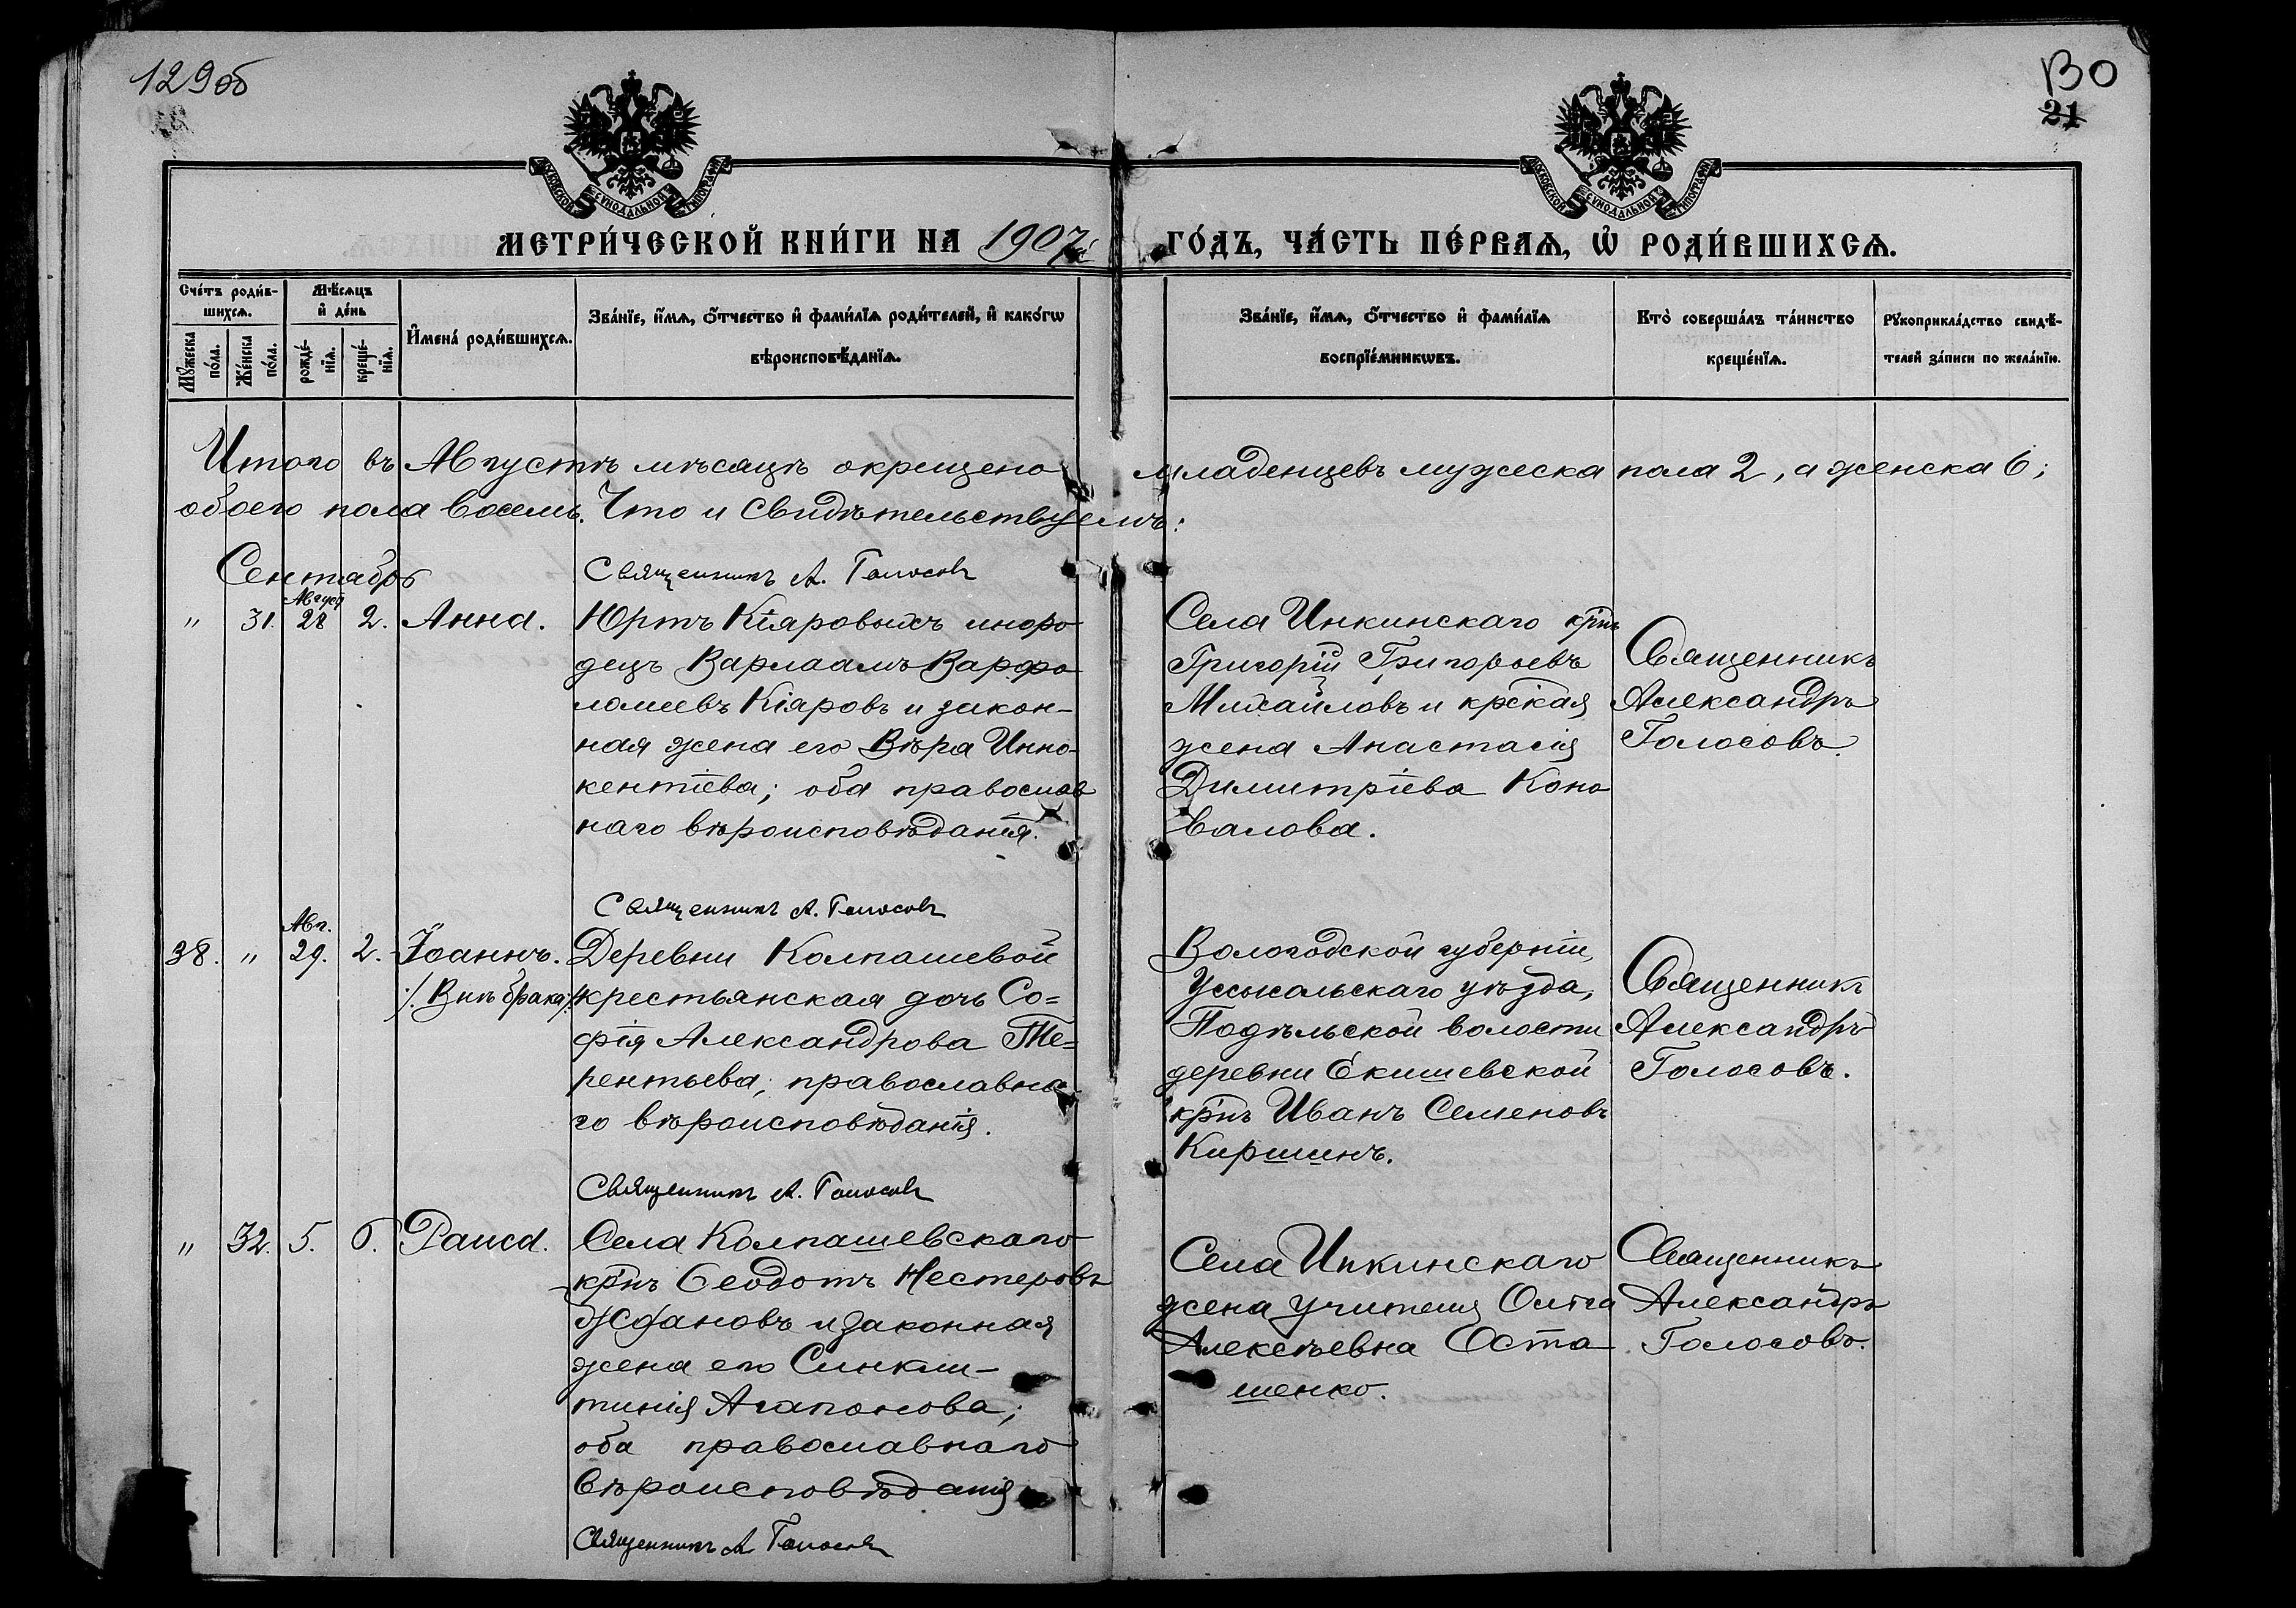 129об
130
21
МОСКОВСКОЙ СѴНОДАЛЬНОЙ ТИПОГРАФІИ
МОСКОВСКОЙ СѴНОДАЛЬНОЙ ТИПОГРАФІИ
МЕТРИ́ЧЕСКОЙ КНИ́ГИ НА 1907й ГО́ДЪ, ЧА́СТЬ ПЕ́РВАѦ, Ѽ РОДИ́ВШИХСѦ.
Сче́тъ роди́в-
шихсѧ.
Мꙋ́жеска
по́ла.
Же́нска
по́ла.
Мѣ́сѧцъ
и҆ де́нь
рожде́-
нїѧ.
креще́-
нїѧ.
И҆мена̀ роди́вшихсѧ.
Зва́нїе, и҆́мѧ, ѻ҆́тчество и҆ фами́лїѧ роди́телей, и҆ како́гѡ
вѣроисповѣ́данїѧ.
Зва́нїе, и҆́мѧ, ѻ҆́тчество и҆ фами́лїѧ
воспрїе́мникѡвъ.
Кто̀ соверша́лъ та́инство
креще́нїѧ.
Рꙋкоприкла́дство свидѣ́-
телей за́писи по жела́нїю.
Итого въ Августѣ мѣсяцѣ окрещено младенцевъ мужеска пола 2, а женска 6;
обоего пола восемь. Что и свидѣтельствуемъ:
Священникъ А. Голосовъ
Сентабрь
" 31. Август 28 2. Анна.
Юртъ Кіяровыхъ иноро
децъ Варлаамъ Варфо
ломеевъ Кіяровъ и закон-
ная жена его Вѣра Инно-
кентіева; оба православ
наго вѣроисповѣданія.
Села Инкинскаго крнъ
Григорій Григорьевъ
Михайловъ и крская
жена Анастасія
Димитріева Коно
валова.
Священникъ
Александръ
Голосовъ.
Священникъ А. Голосовъ
38. " Авг. 29. 2. Іоаннъ.
/. Внѣ брака ./
Деревни Колпашевой
крестьянская дочь Со=
фія Александрова Те=
рентьева; православна
го вѣроисповѣданія.
Вологодской губерніи,
Усысольскаго уѣзда,
Подѣльской волости
деревни Екишевской
крнъ Иванъ Семеновъ
Киршинъ.
Священникъ
Александръ
Голосовъ.
Священникъ А. Голосовъ
" 32. 5. 6. Раиса.
Села Колпашевскаго
крнъ Ѳеодотъ Нестеровъ
и законная
жена его Синкли-
тикія Агапонова;
оба православнаго
вѣроисповѣданія
Села Инкинскаго
жена учителя Ольга
Алексѣевна Оста-
шенко.
Священникъ
Александръ
Голосовъ.
Священникъ А. Голосовъ